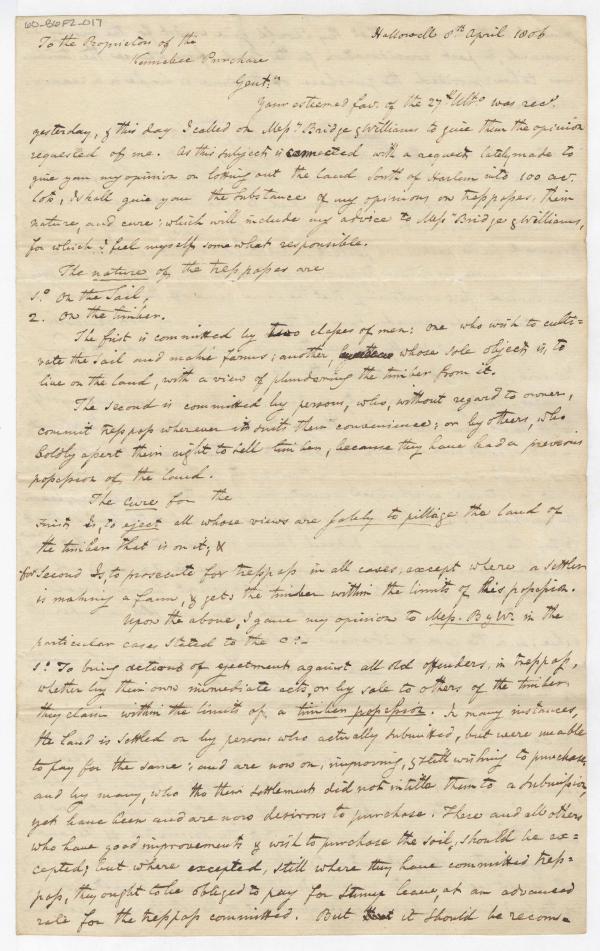 60-86F2-017
Hallowell 8th April 1806
To the Proprietors of the
Kennebec Purchase
Gentn
Your esteemed fav. of the 27th Ulto was recd.
yesterday, & this day I called on Messrs Bridge & Williams to give them the opinion
requested of me. As this subject is connected with a request lately made to
give you my opinion on lotting out the land South of Harlem into 100 acr.
lots, I shall give you the substance of my opinions on trespasses, their
nature, and cure: which will include my advice to Messrs Bridge & Williams,
for which I feel myself somewhat responsible.
The nature of the trespasses are
1.o On the Soil,
2. On the timber.
The first is committed by two classes of men: one who wish to culti-
vate the Soil and make farms; another, whose sole object is, to
live on the land, with a view of plundering the timber from it.
The second is committed by persons, who, without regard to owner,
commit trespass wherever it suits their convenience; or by others, who
boldly assert their right to sell timber, because they have had a previous
possession of the land.
The cure for the
First Is, to eject all whose views are solely to pillage the land of
the timber that is on it; &
for Second Is, to prosecute for trespass in all cases, except where a settler
is making a farm, & gets the timber within the limits of his possession.
Upon the above, I gave my opinion to Mess. B & W. in the
particular case stated to the Co.
1.o To bring actions of ejectment against all old offenders, in trespass,
whether by their own immediate acts, or by sale to others of the timber
they claim within the limits of a timber possession. In many instances,
the land is settled on by persons who actually submitted, but were unable
to pay for the same; and are now on, improving, & still wishing to purchase,
and by many, who tho their settlements did not intitle them to a submission,
yet have been and are now desirous to purchase. These and all others
who have good improvements & wish to purchase the soil, should be ex-
cepted; but where excepted, still where they have committed tres-
pass, they ought to be obliged to pay for stump leave, at an advanced
rate for the trespass committed. But it should be recom-